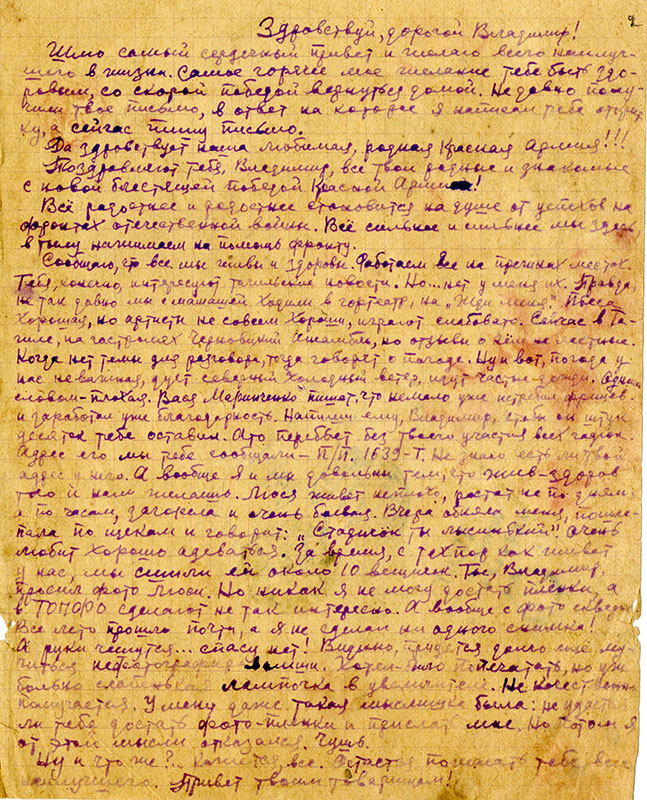 2
Здравствуй, дорогой Владимир!
Шлю самый сердечный привет и желаю всего наилуч-
шего в жизни. Самое горячее мое желание тебе быть здо-
ровым, со скорой победой вернуться домой. Недавно полу-
чили твое письмо, в ответ на которое я написал тебе открыт
ку, а сейчас пишу письмо.
Да здравствует наша любимая, родная Красная Армия!!!
Поздравляют тебя, Владимир, все твои родные и знакомые
с новой блестящей победой Красной Армии!
Всё радостнее и радостнее становится на душе от успехов на
фронтах отечественной войны. Всё сильнее и сильнее мы здесь
в тылу нажимаем на помощь фронту.
Сообщаю, что все мы живы и здоровы. Работаем все на прежних местах.
Тебя, конечно, интересуют тагильские новости. Но... нет у меня их. Правда,
не так давно мы с мамашей ходили в гортеатр, на "Жди меня". Пьеса
хорошая, но артисты не совсем хороши, играют слабовато. Сейчас в Та-
гиле, на гастролях Черновицкий ансамбль, но отзывы о нём не лестные.
Когда нет темы для разговора, тогда говорят о погоде. Ну и вот, погода у
нас неважная, дует северный холодный ветер, идут частые дожди. Одним
словом - плохая. Вася Маринченко пишет, что немало уже истребил фрицев
и заработал уже благодарность. Напиши ему, Владимир, чтобы он штук
десяток тебе оставил. А то перебьет без твоего участия всех гадюк.
Адрес его мы тебе сообщали - П/П. 1639-Т. Не знаю есть ли твой
адрес у него. А вообще я и мы довольны тем, что жив-здоров
того и вам желаем. Люся живет неплохо, растет не по дням,
а по часам, загорела и очень боевая. Вчера обняла меня, пошле-
пала по щекам и говорит: "Стадичок ты лысинький"! Очень
любит хорошо одеваться. За время, с тех пор как живет
у нас, мы сшили ей около 10 вещичек. Ты, Владимир,
просил фото Люси. Но никак я не могу достать плёнки, а
в "ТОПОФО" сделают не так интересно. А вообще с фото скверно.
Все лето прошло почти, а я не сделал ни одного снимка!
А руки чешутся... спасу нет! Видимо, придется долго ещё му-
читься
Хотел было попечатать, но уж
больно слабенькая лампочка в увеличителе. Не качественно
получается. У меня даже такая мыслишка была: не удастся
ли тебе достать фото-плёнки и прислать мне. Но потом я
от этой мысли отказался. Чушь.
Ну и что же?.. Кажется, все. Остается пожелать тебе всего
наилучшего. Привет твоим товарищам!